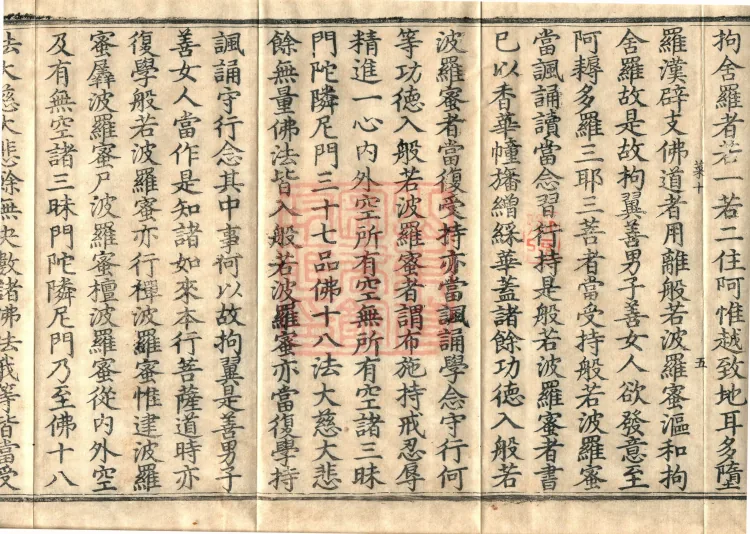 拘舍羅者若一若二住阿惟越致地耳多墮
菜十 五
羅漢辟支佛道者用離般若波羅蜜漚和拘
舍羅故是故拘翼善男子善女人欲發意至
阿耨多羅三耶三菩者當受持般若波羅蜜
當諷誦讀當念習行持是般若波羅蜜者書
已以香華幢旛繒綵華蓋諸餘功德入般若
波羅蜜者當復受持亦當諷誦學念守行何
等功德入般若波羅蜜者謂布施持戒忍辱
精進一心內外空所有空無所有空諸三昧
門陀隣尼門三十七品佛十八法大慈大悲
餘無量佛法皆入般若波羅蜜亦當復學持
諷誦守行念其中事何以故拘翼是善男子
善女人當作是知諸如來本行菩薩道時亦
復學般若波羅蜜亦行禪波羅蜜惟逮波羅
蜜羼波羅蜜尸波羅蜜檀波羅蜜從內外空
及有無空諸三昧門陀隣尼門乃至佛十八
法大慈大悲餘無央數諸佛法我等皆當受